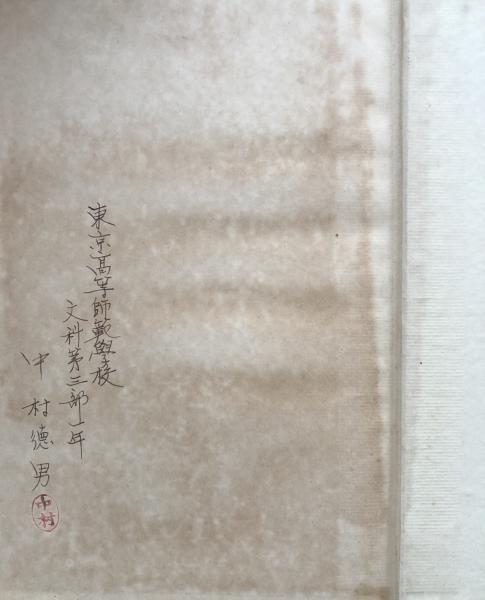 東京高等師範學校
文科第三部一年
中村德男
中村